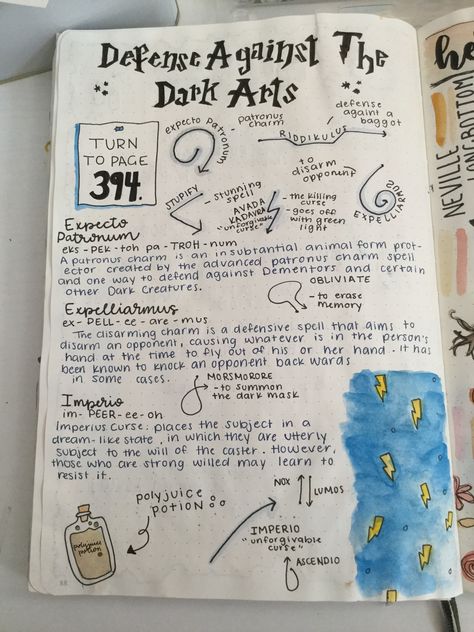 Defense Against The
Dark Arts
TURN
TO PAGE
394.
expecto patronum
- patronus
charm
RIDDIKULUS
defense
againt a
baggot
to
disarm
opponent
EXPELLIARMUS
STUPIFY
- stunning
spell
AVADA
KADAVRA
"unforgivable
curse"
- the killing
curse
- goes off
with green
light
Expecto
Patronum
eks - PEK - toh pa - TROH - num
A patronus charm is an insubstantial animal form prot-
ector created by the advanced patronus charm spell
and one way to defend against Dementors and certain
other Dark Creatures.
OBLIVIATE
- to erase
memory
Expelliarmus
ex - PELL - ee - are - mus
The disarming charm is a defensive spell that aims to
disarm an opponent, causing whatever is in the person's
hand at the time to fly out of his or her hand. It has
been known to knock an opponent back wards
in some cases.
MORSMORDRE
- to summon
the dark mask
Imperio
im- PEER - ee - oh
Imperius Curse: places the subject in a
dream-like state, in which they are utterly
subject to the will of the caster. However,
those who are strong willed may learn to
resist it.
polyjuice
potion
polyjuice
potion
NOX
LUMOS
IMPERIO
"unforgivable
curse"
ASCENDIO
88
NEVILLE
LONGBOTTOM
he